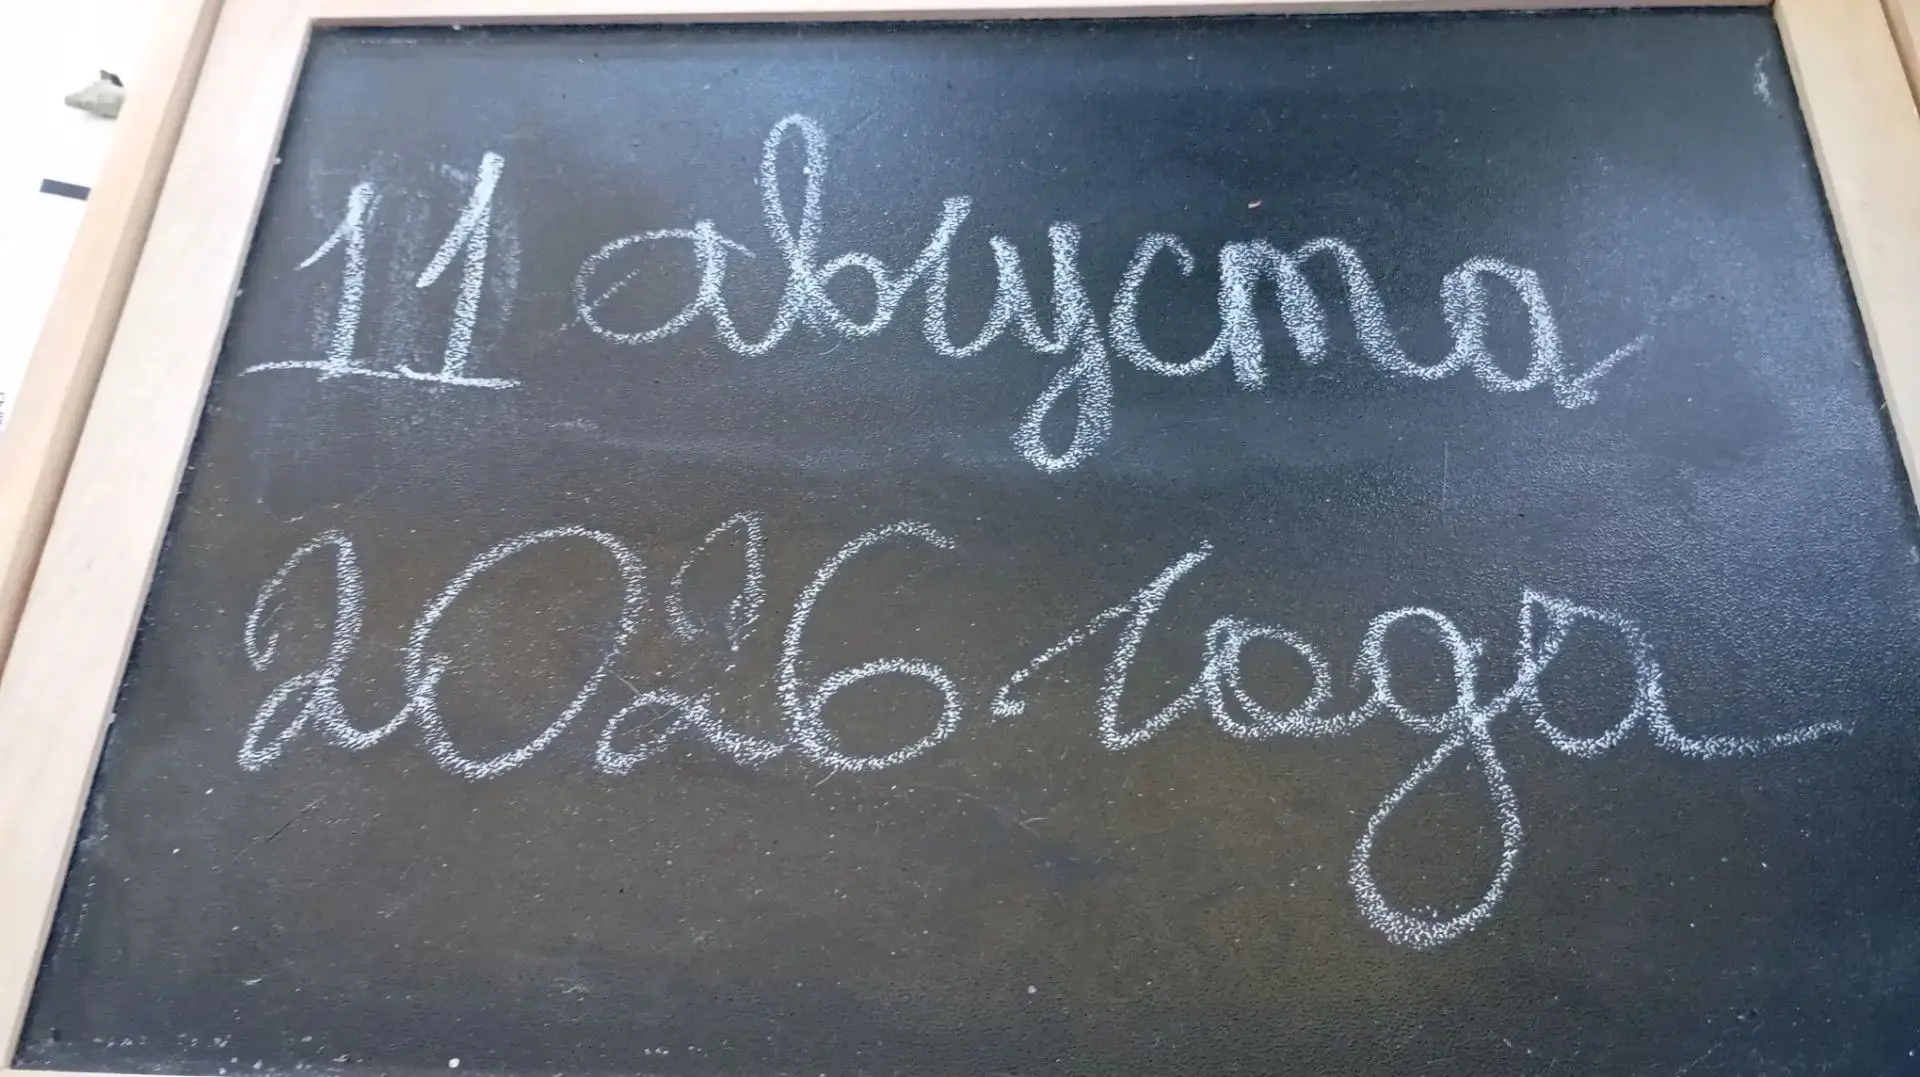 11 августа
2026 года